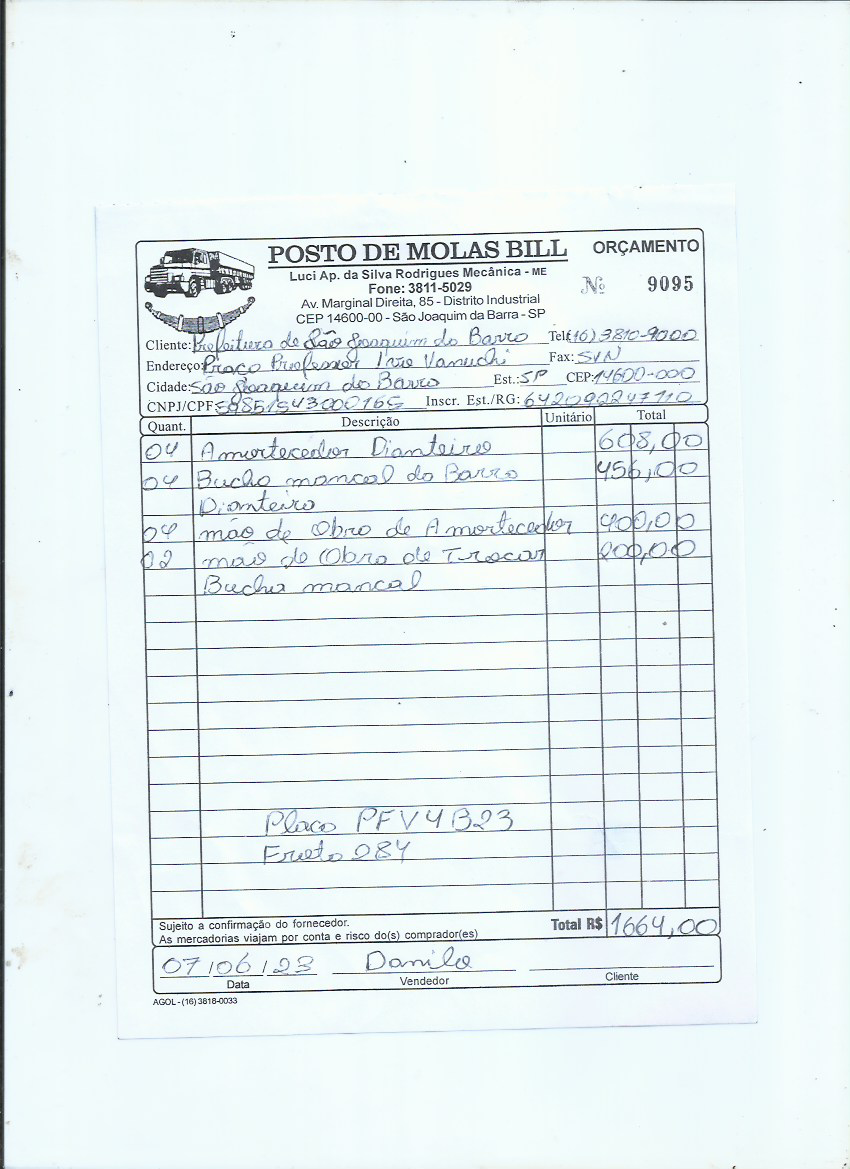 POSTO DE MOLAS BILL ORÇAMENTO
Luci Ap. da Silva Rodrigues Mecânica - ME
Fone: 3811-5029 Nº 9095
Av. Marginal Direita, 85 - Distrito Industrial
CEP 14600-00 - São Joaquim da Barra - SP
Cliente: Prefeitura de São Joaquim da Barra Tel: (16) 3810-9000
Endereço: Praça Professor Ivo Vanuchi Fax: S/N
Cidade: São Joaquim da Barra Est.: SP CEP: 14600-000
CNPJ/CPF: 59851543000165 Inscr. Est./RG: 642092247110
Quant. Descrição Unitário Total
04 Amortecedor Dianteiro 608,00
04 Bucha mancal da Barra 456,00
Dianteira
04 mão de Obra de Amortecedor 400,00
02 mão de Obra de Trocar 200,00
Bucha mancal
Placa PFV4B23
Frota 284
Sujeito a confirmação do fornecedor.
As mercadorias viajam por conta e risco do(s) comprador(es) Total R$ 1664,00
07/06/23 Danilo
Data Vendedor Cliente
AGOL - (16) 3818-0033